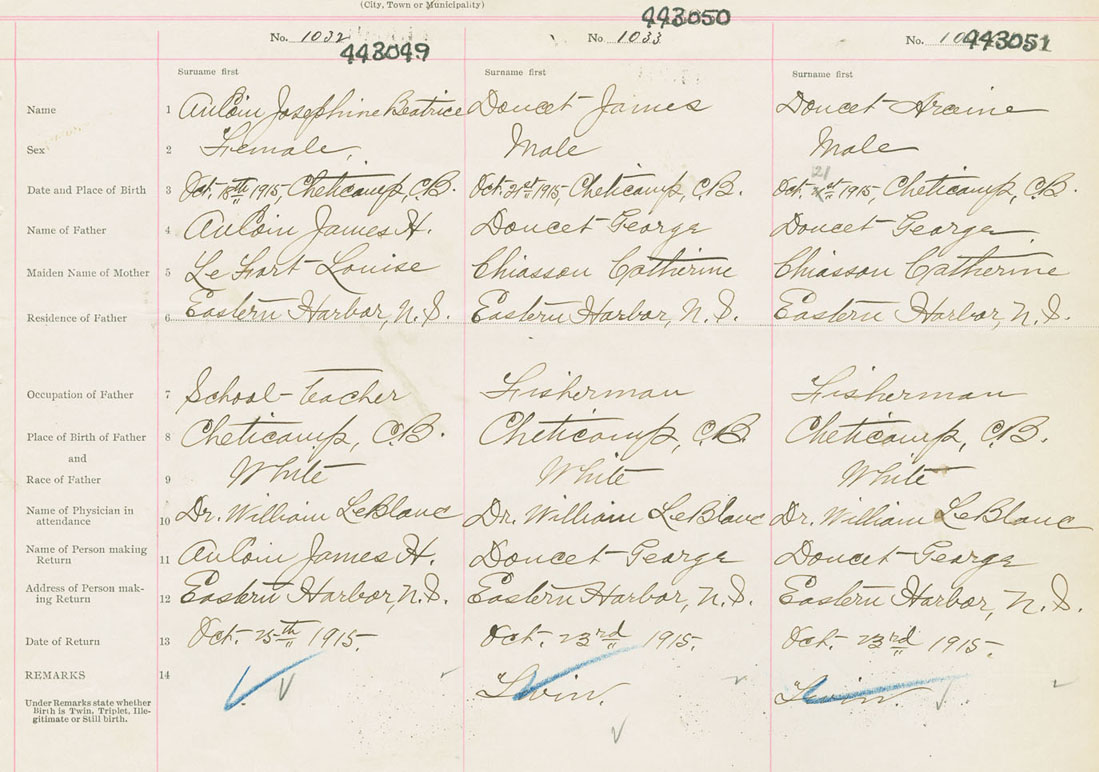 (City, Town or Municipality)
443050
No. 1032 No. 1033 No. 10
443049 443051
Surname first Surname first Surname first
Name 1 AuCoin Josephine Beatrice Doucet James Doucet Arceine
Sex 2 Female Male Male
21
Date and Place of Birth 3 Oct. 18th 1915, Cheticamp, C.B. Oct. 21st 1915, Cheticamp, C.B. Oct. st 1915, Cheticamp, C.B.
Name of Father 4 AuCoin James H. Doucet George Doucet George
Maiden Name of Mother 5 Le Fort Louise Chiasson Catherine Chiasson Catherine
Residence of Father 6 Eastern Harbor, N.S. Eastern Harbor, N.S. Eastern Harbor, N.S.
Occupation of Father 7 School-teacher Fisherman Fisherman
Place of Birth of Father 8 Cheticamp, C.B. Cheticamp, C.B. Cheticamp, C.B.
and
Race of Father 9 White White White
Name of Physician in
attendance 10 Dr. William LeBlanc Dr. William LeBlanc Dr. William LeBlanc
Name of Person making
Return 11 AuCoin James H. Doucet George Doucet George
Address of Person mak-
ing Return 12 Eastern Harbor, N.S. Eastern Harbor, N.S. Eastern Harbor, N.S.
Date of Return 13 Oct. 25th 1915. Oct. 23rd 1915. Oct. 23rd 1915.
REMARKS 14 Twin. Twin.
Under Remarks state whether
Birth is Twin, Triplet, Ille-
gitimate or Still birth.